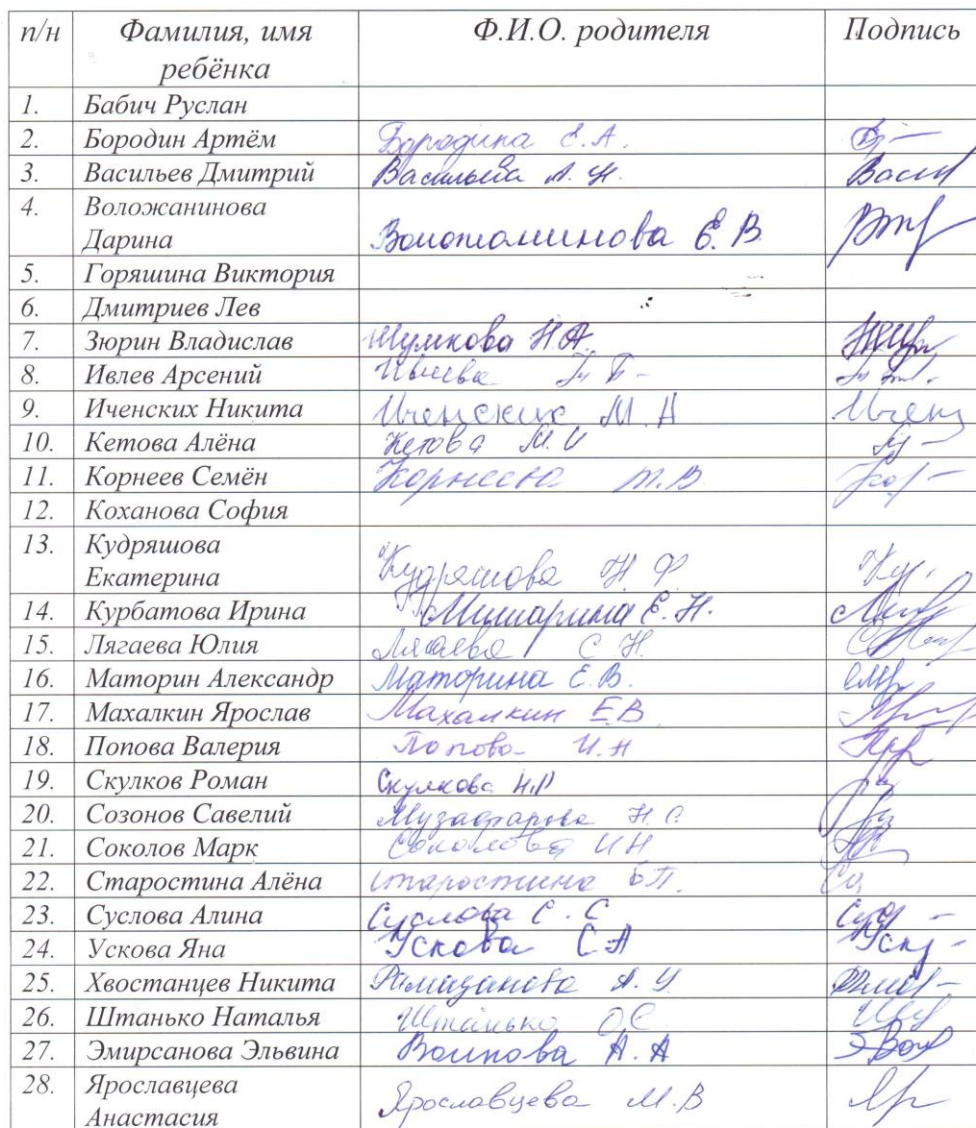 п/н Фамилия, имя ребёнка Ф.И.О. родителя Подпись
1. Бабич Руслан
2. Бородин Артём Бородина Е.А.
3. Васильев Дмитрий Васильева А. Н. Васил
4. Воложанинова
Дарина Воложанинова Е. В.
5. Горяшина Виктория
6. Дмитриев Лев
7. Зюрин Владислав Шумкова Н.А.
8. Ивлев Арсений Ивлева
9. Иченских Никита Иченских М. Н Ичен
10. Кетова Алёна Кетова М. И
11. Корнеев Семён Корнеева Т.В. Кор
12. Коханова София
13. Кудряшова
Екатерина Кудряшова Н Ф Куд
14. Курбатова Ирина Мишарина Е. Н.
15. Лягаева Юлия Лягаева С Н.
16. Маторин Александр Маторина Е.В.
17. Махалкин Ярослав Махалкин ЕВ
18. Попова Валерия Попова И. Н
19. Скулков Роман Скулкова
20. Созонов Савелий Музафарова Н. С.
21. Соколов Марк Соколова И Н
22. Старостина Алёна Старостина
23. Суслова Алина Суслова С. С
24. Ускова Яна Ускова С А Уск
25. Хвостанцев Никита Рамазанова А. У.
26. Штанько Наталья Штанько О С
27. Эмирсанова Эльвина Воинова А. А
28. Ярославцева
Анастасия Ярославцева М. В Яр